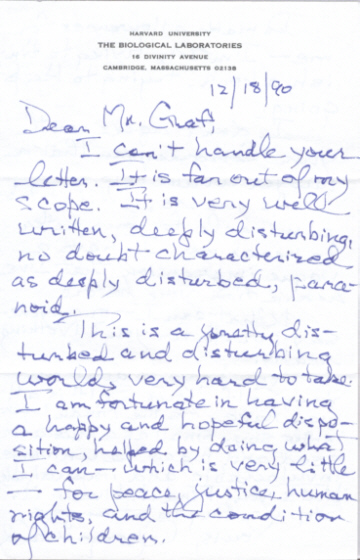 HARVARD UNIVERSITY
THE BIOLOGICAL LABORATORIES
16 DIVINITY AVENUE
CAMBRIDGE, MASSACHUSETTS 02138
12/18/90
Dear Mr. Graf,
I can't handle your
letter. It is far out of my
scope. It is very well
written, deeply disturbing;
no doubt characterized
as deeply disturbed, para-
noid.
This is a pretty dis-
turbed and disturbing
world, very hard to take.
I am fortunate in having
a happy and hopeful dispo-
sition, helped by doing what
I can — which is very little
— for peace, justice, human
rights, and the condition
of children.